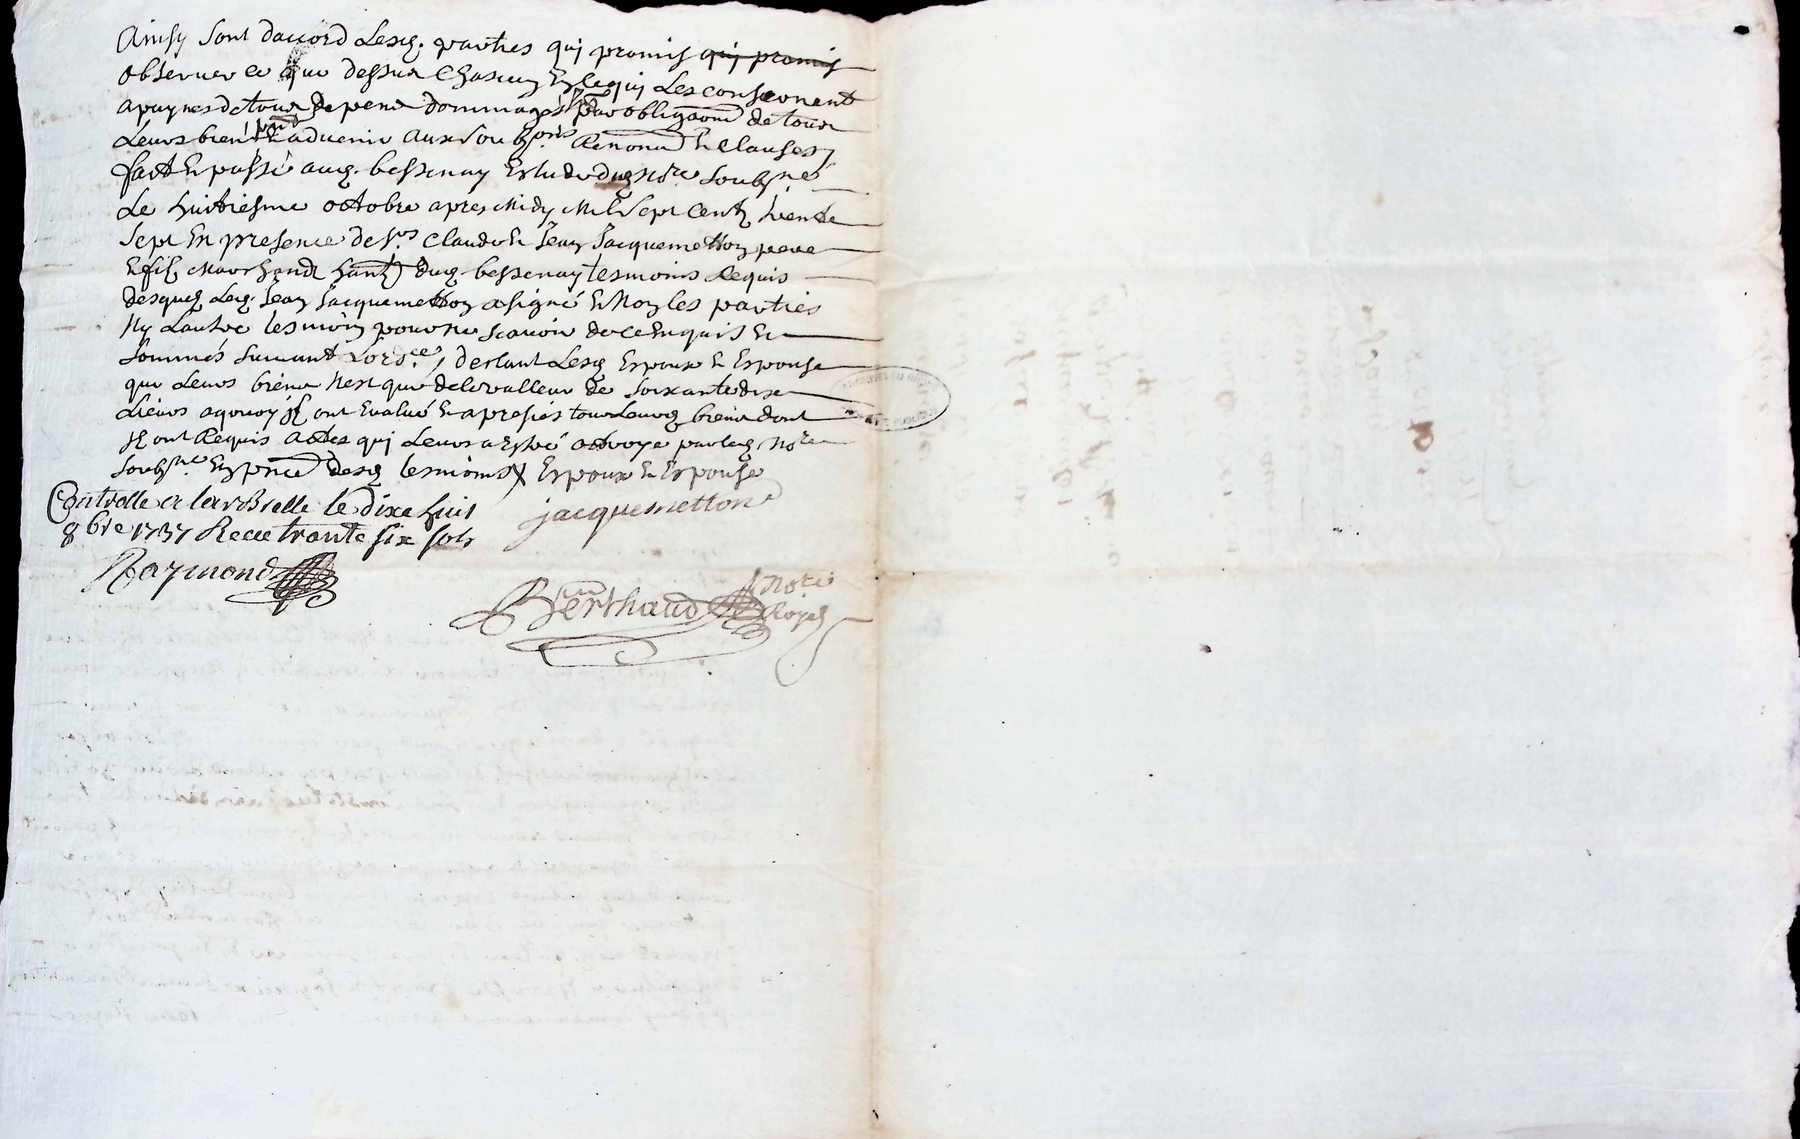 Ainsy sont daccord lesd. parties qui promis qui promis
observer ce que dessus chascun En ce qui les consernent
a paynes de tous depens dommages par obligaõn de tous
Leurs biens pnts & advenir aux soubsons Renonõn & clauses
fait & passé aud. bessenay Estude dud Nore soubsné
Le huitiesme octobre apres Midy Mil sept centz trente
sept En presence de srs Claude & Jean Jacquemetton pere
& fils Marchands hantz dud. bessenay tesmoins Requis
desquels led. Jean Jacquemetton a signé & Non les parties
Ny L'autre tesmoin pour ne scavoir de ce Enquis &
sommés suivant Lordce, declarant Lesd Espoux & Espouse
que Leurs biens N'est que de la valleur de soixante dix
Livres a quoy Ils ont Evalué & apresiés tous leurs biens dont
Ils ont Requis actes qui Leurs a Esté octroye par led. Nore
soubsne En pnce desd tesmoins Espoux & Espouse
Controlle a Larbrelle le dixe huit
8bre 1737 Receu trante six sols
jacquemetton
Raymond
Berthaud Nore
Royal